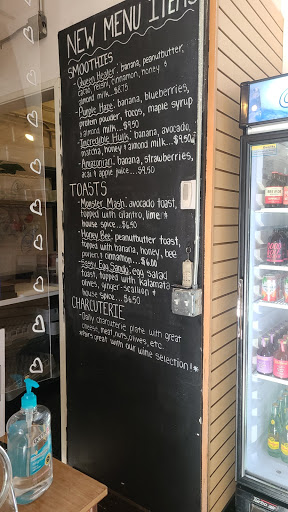 NEW MENU ITEMS
SMOOTHIES
-Queen Healer: banana, peanutbutter,
cacao, cinnamon, honey &
almond milk...$8.75
-Purple Haze: banana, blueberries,
protein powder, cocos, maple syrup
& almond milk...$9.50
-Incredible Hulk: banana, avocado,
matcha, honey & almond milk...$9.50
-Amazonian: banana, strawberries,
acai & apple juice...$9.50
TOASTS
-Monster Mash: avocado toast,
topped with cilantro, lime &
house spice...$6.50
-Honey Bee: peanutbutter toast,
topped with banana, honey, bee
pollen & cinnamon...$6.00
-Eggy Egg Sando: egg salad
toast, topped with Kalamata
olives, ginger-scallion &
house spice...$6.50
CHARCUTERIE
-Daily charcuterie plate with great
cheese, meat, nuts, olives, etc.
*Pairs great with our wine selection!*